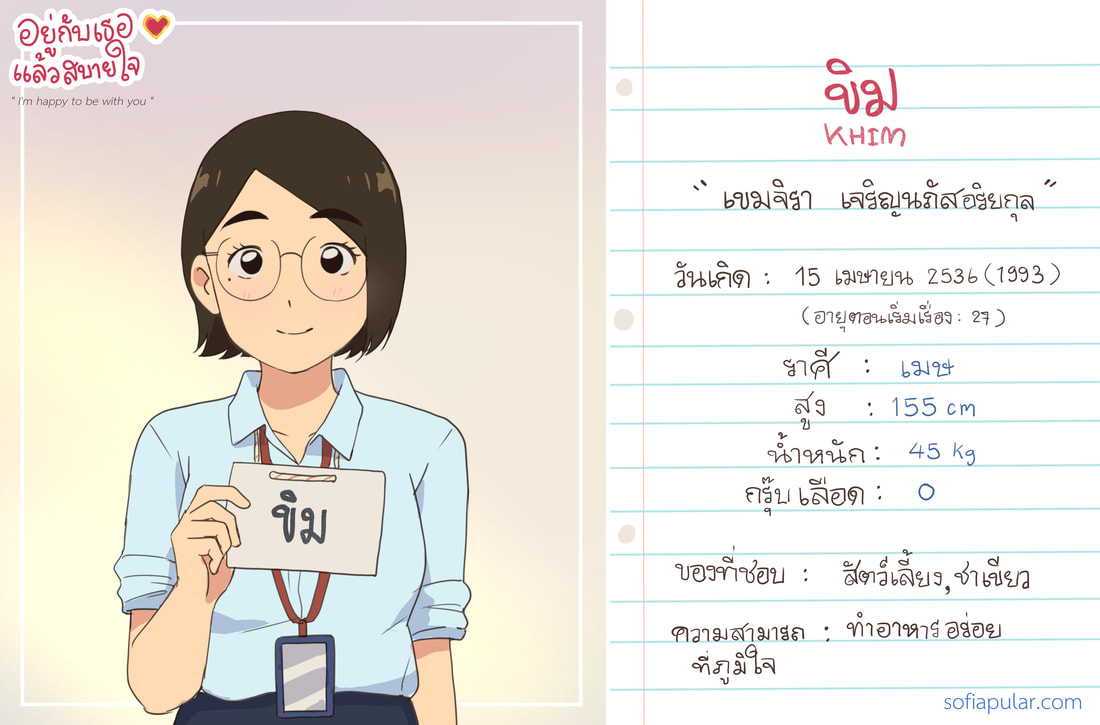 อยู่กับเธอ
แล้วสบายใจ
" I'm happy to be with you "
ขิม
ขิม
KHIM
" เขมจิรา เจริญนภัสอริยกุล "
วันเกิด : 15 เมษายน 2536 (1993)
(อายุตอนเริ่มเรื่อง : 27)
ราศี : เมษ
สูง : 155 cm
น้ำหนัก : 45 kg
กรุ๊บเลือด : O
ของที่ชอบ : สัตว์เลี้ยง, ชาเขียว
ความสามารถ : ทำอาหารอร่อย
ที่ภูมิใจ
sofiapular.com